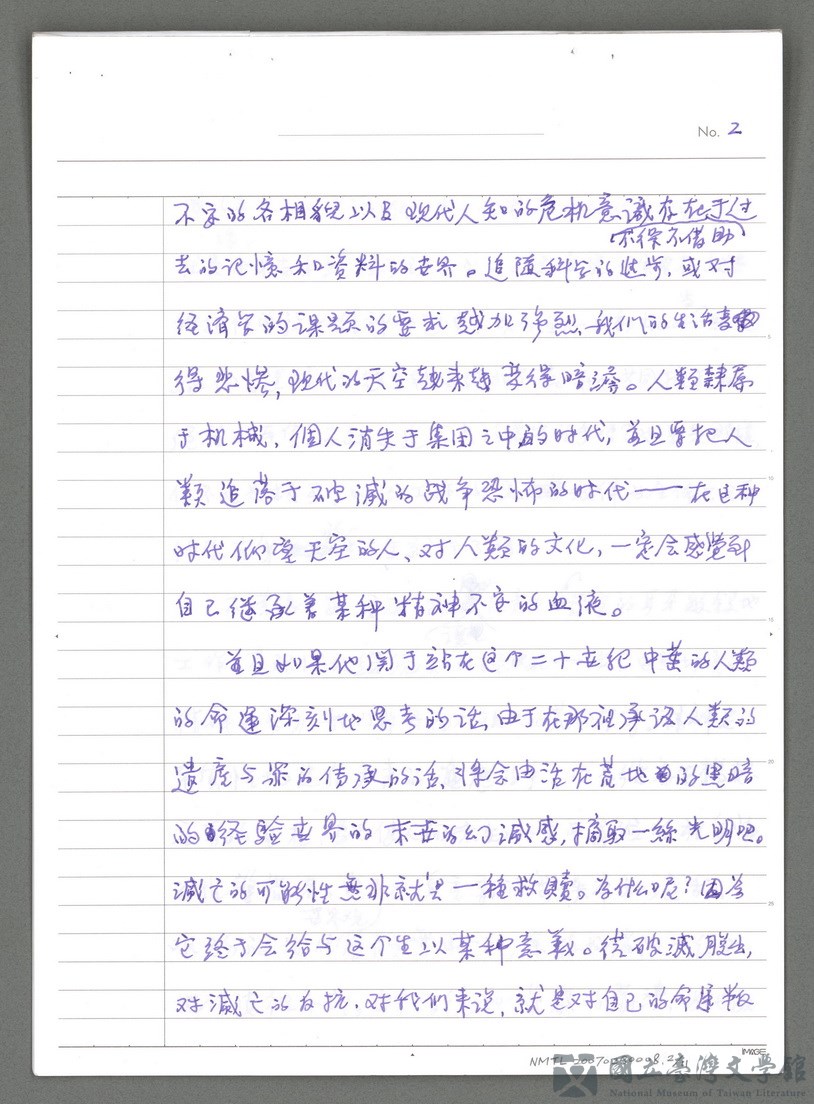 No. 2
不安的各相貌以及现代人知的危机意識存在于过
不得不借助
去的记憶和資料的世界。追随科学的进步，或对
经済学的课题的要求越加强烈、我们的生活变
得悲惨，现代的天空越来越变得暗澹。人類隸属
于机械、個人消失于集団之中的时代，並且要把人
類追落于破滅的战争恐怖的时代——在这种
时代仰望天空的人、对人類的文化，一定会感覚到
自己继承着某种精神不安的血液。
並且如果他関于站在这个二十世纪中葉的人類
的命運深刻地思考的话、由于在那裡承认人類的
遺産与罪的传承的话、将会由活在荒地的黑暗
的经驗世界的末世的幻滅感，摘取一絲光明吧。
滅亡的可能性無非就是一種救贖。为什么呢？因为
它终于会给与这个生以某种意義。从破滅脱出，
对滅亡的反抗，对我们来说，就是对自己的命運叛
IMAGE
NMTL 20070
國立臺灣文學館
National Museum of Taiwan Literature